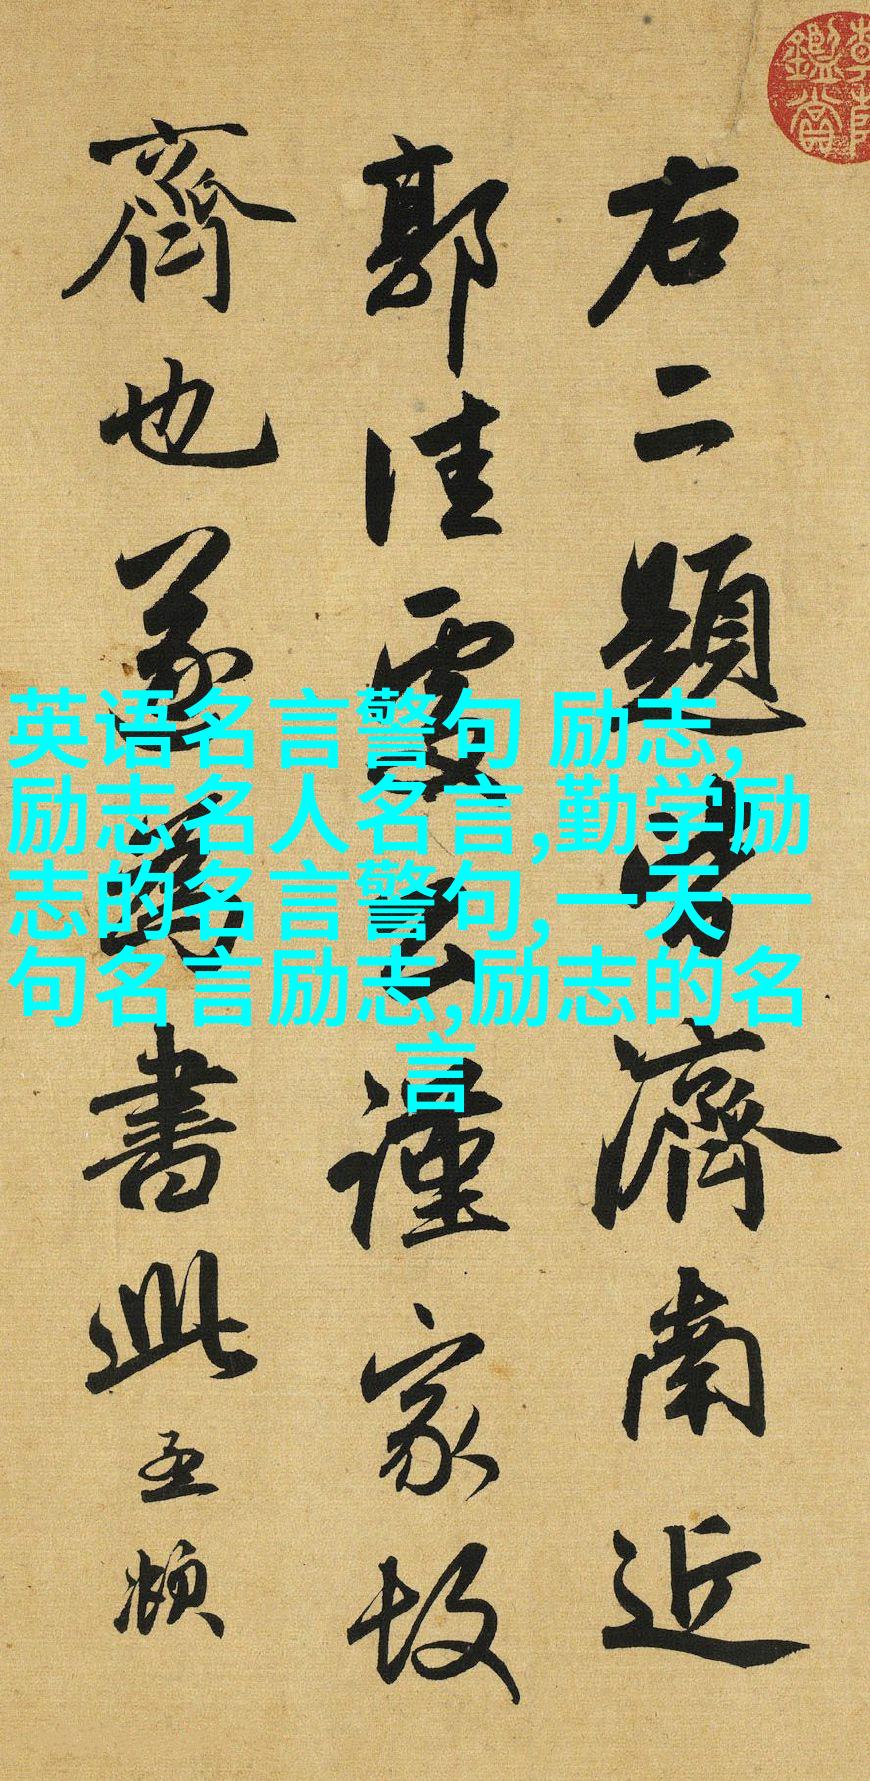 右二題皆濟南近
郭佳處公謹家故
齊也遂為書此孟頫
英语名言警句 励志,
励志名人名言,勤学励
志的名言警句,一天一
句名言励志,励志的名
言